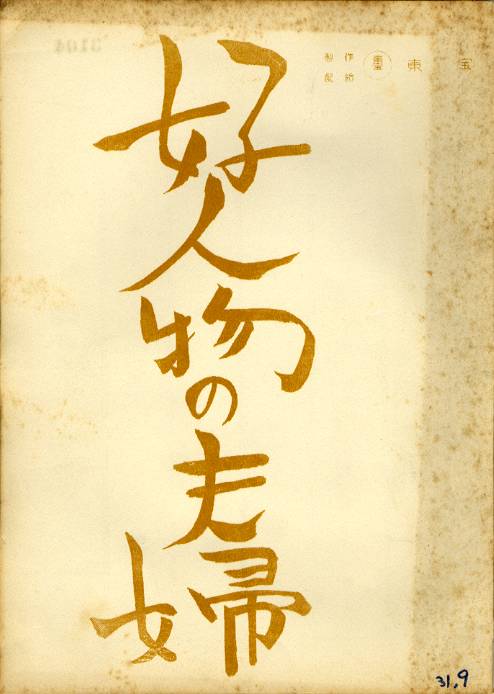 製作
配給
東宝
好人物の夫婦
31.9